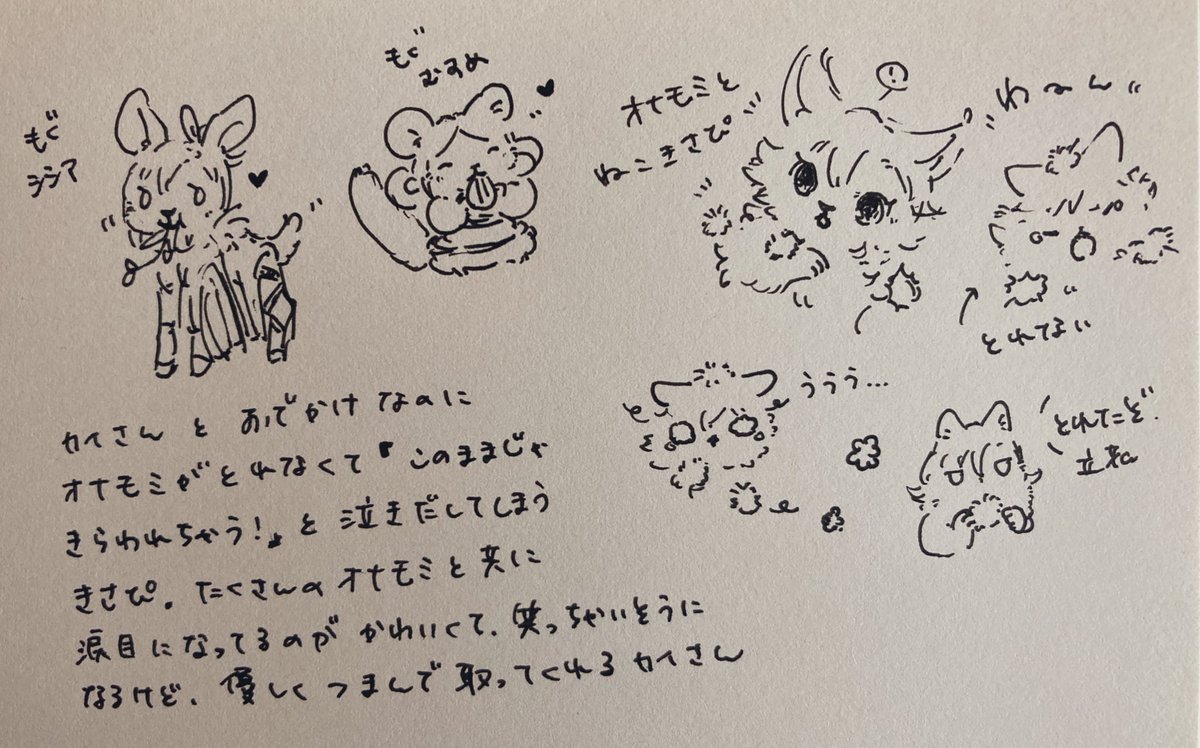 もぐ
シシア
もぐ
むすめ
オナモミと
ねこきさぴ
!
わーん
とれてない
ううう…
とれてこぞ
カイさんと おでかけなのに
オナモミがとれなくて「このままじゃ
きらわれちゃう!」と泣きだしてしまう
きさぴ。たくさんのオナモミと共に
涙目になってるのがかわいくて、笑っちゃいそうに
なるけど、優しくつまんで取ってくれるカイさん